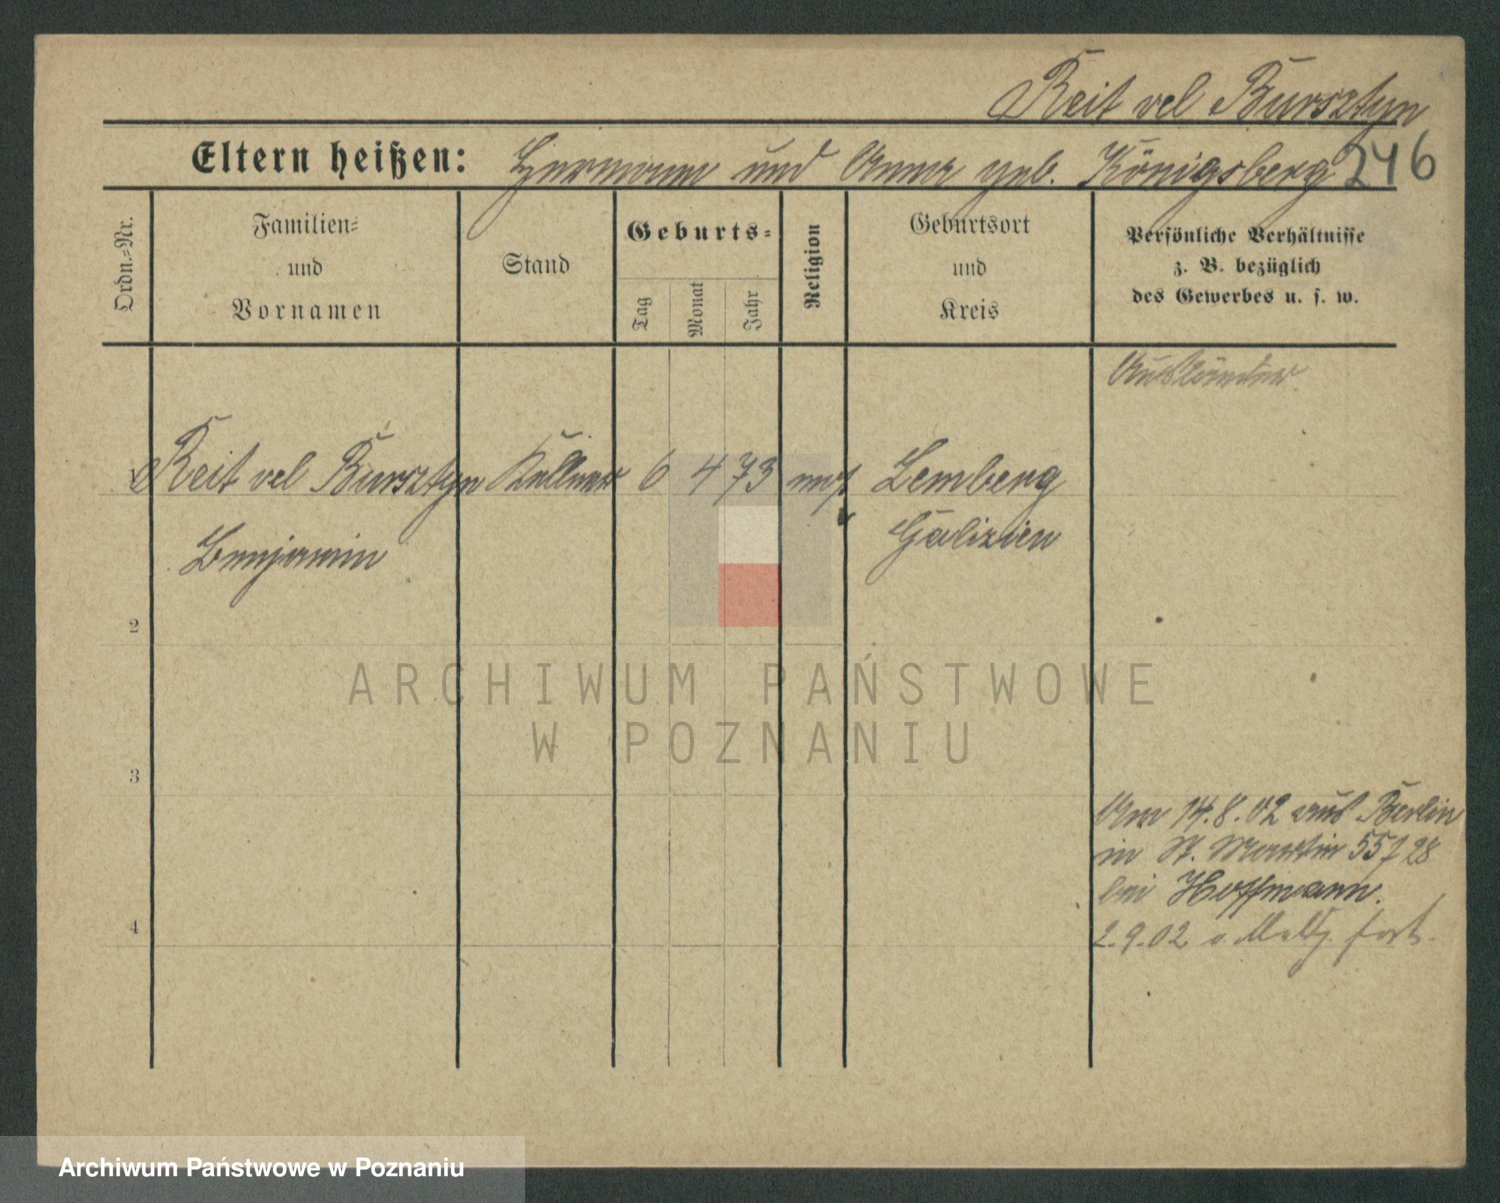 Reit vel Bursztyn
Eltern heißen: Hermann und Anna geb. Königsberg 246
Ordn.-Nr.
Familien-
und
Vornamen
Stand
Geburts-
Tag
Monat
Jahr
Religion
Geburtsort
und
Kreis
Persönliche Verhältnisse
z. B. bezüglich
des Gewerbes u. s. w.
Ausländer.
1 Reit vel Bursztyn Kellner 6 4 73 mos Lemberg
Benjamin Galizien
2
3
4
Am 14.8.02 aus Berlin
in St. Martin 55/28
bei Hoffmann.
2.9.02 o. Meldg. fort.
ARCHIWUM PAŃSTWOWE
W POZNANIU
Archiwum Państwowe w Poznaniu